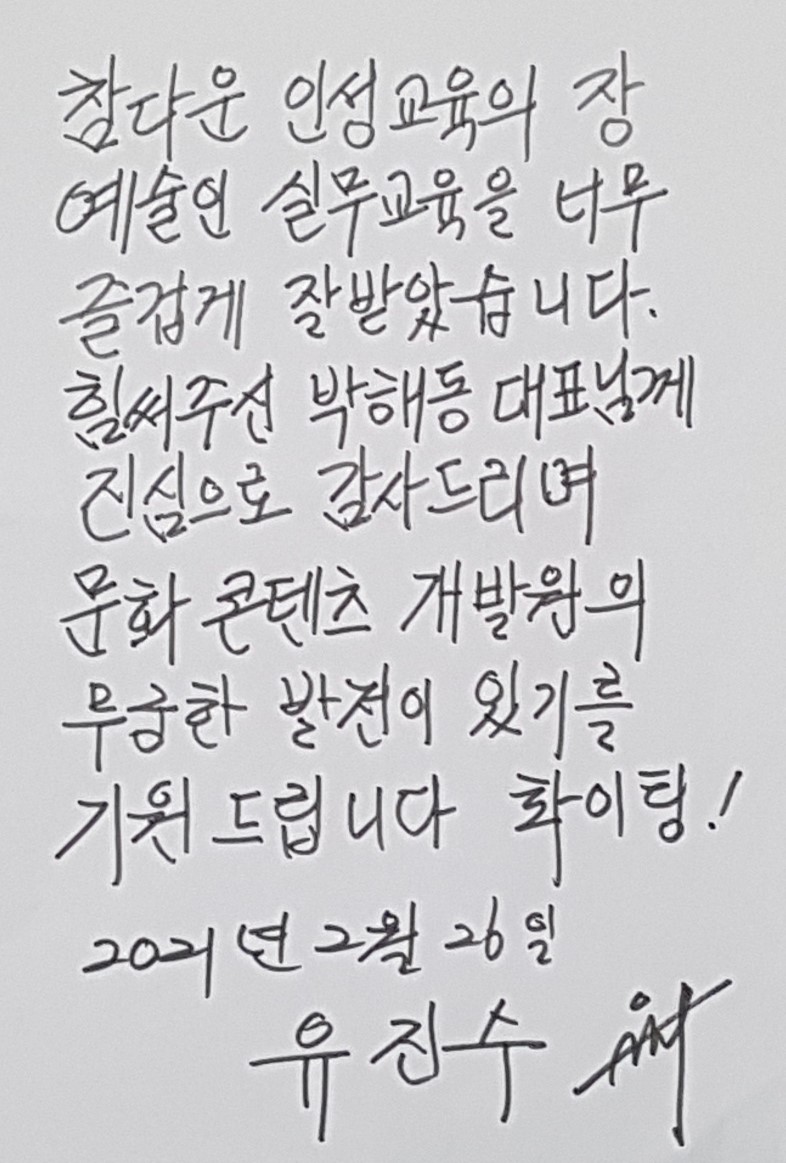 참다운 인성교육의 장
예술인 실무교육을 너무
즐겁게 잘받았습니다.
힘써주신 박해동 대표님께
진심으로 감사드리며
문화 콘텐츠 개발원의
무궁한 발전이 있기를
기원드립니다 화이팅!
2021년 2월 26일
유진수